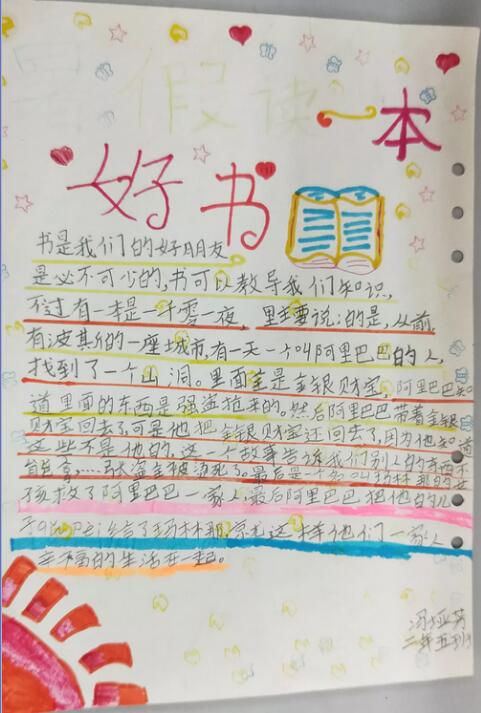 暑假读一本
好书
书是我们的好朋友
是必不可少的,书可以教导我们知识,
不过有一本是一千零一夜,里主要说的是,从前,
有波斯的一座城市,有一天一个叫阿里巴巴的人,
找到了一个山洞。里面全是金银财宝,阿里巴巴知
道里面的东西是强盗抢来的。然后阿里巴巴带着金银
财宝回去了,可是他把金银财宝还回去了,因为他知道
这些不是他的,这一个故事告诉我们别人的东西不
能拿,……强盗全被烫死了。最后是一个名叫玛
孩救了阿里巴巴一家人,最后阿里巴巴把他的儿
给了玛 就这样他们一家人
幸福的生活在一起。
冯 英
二年五班